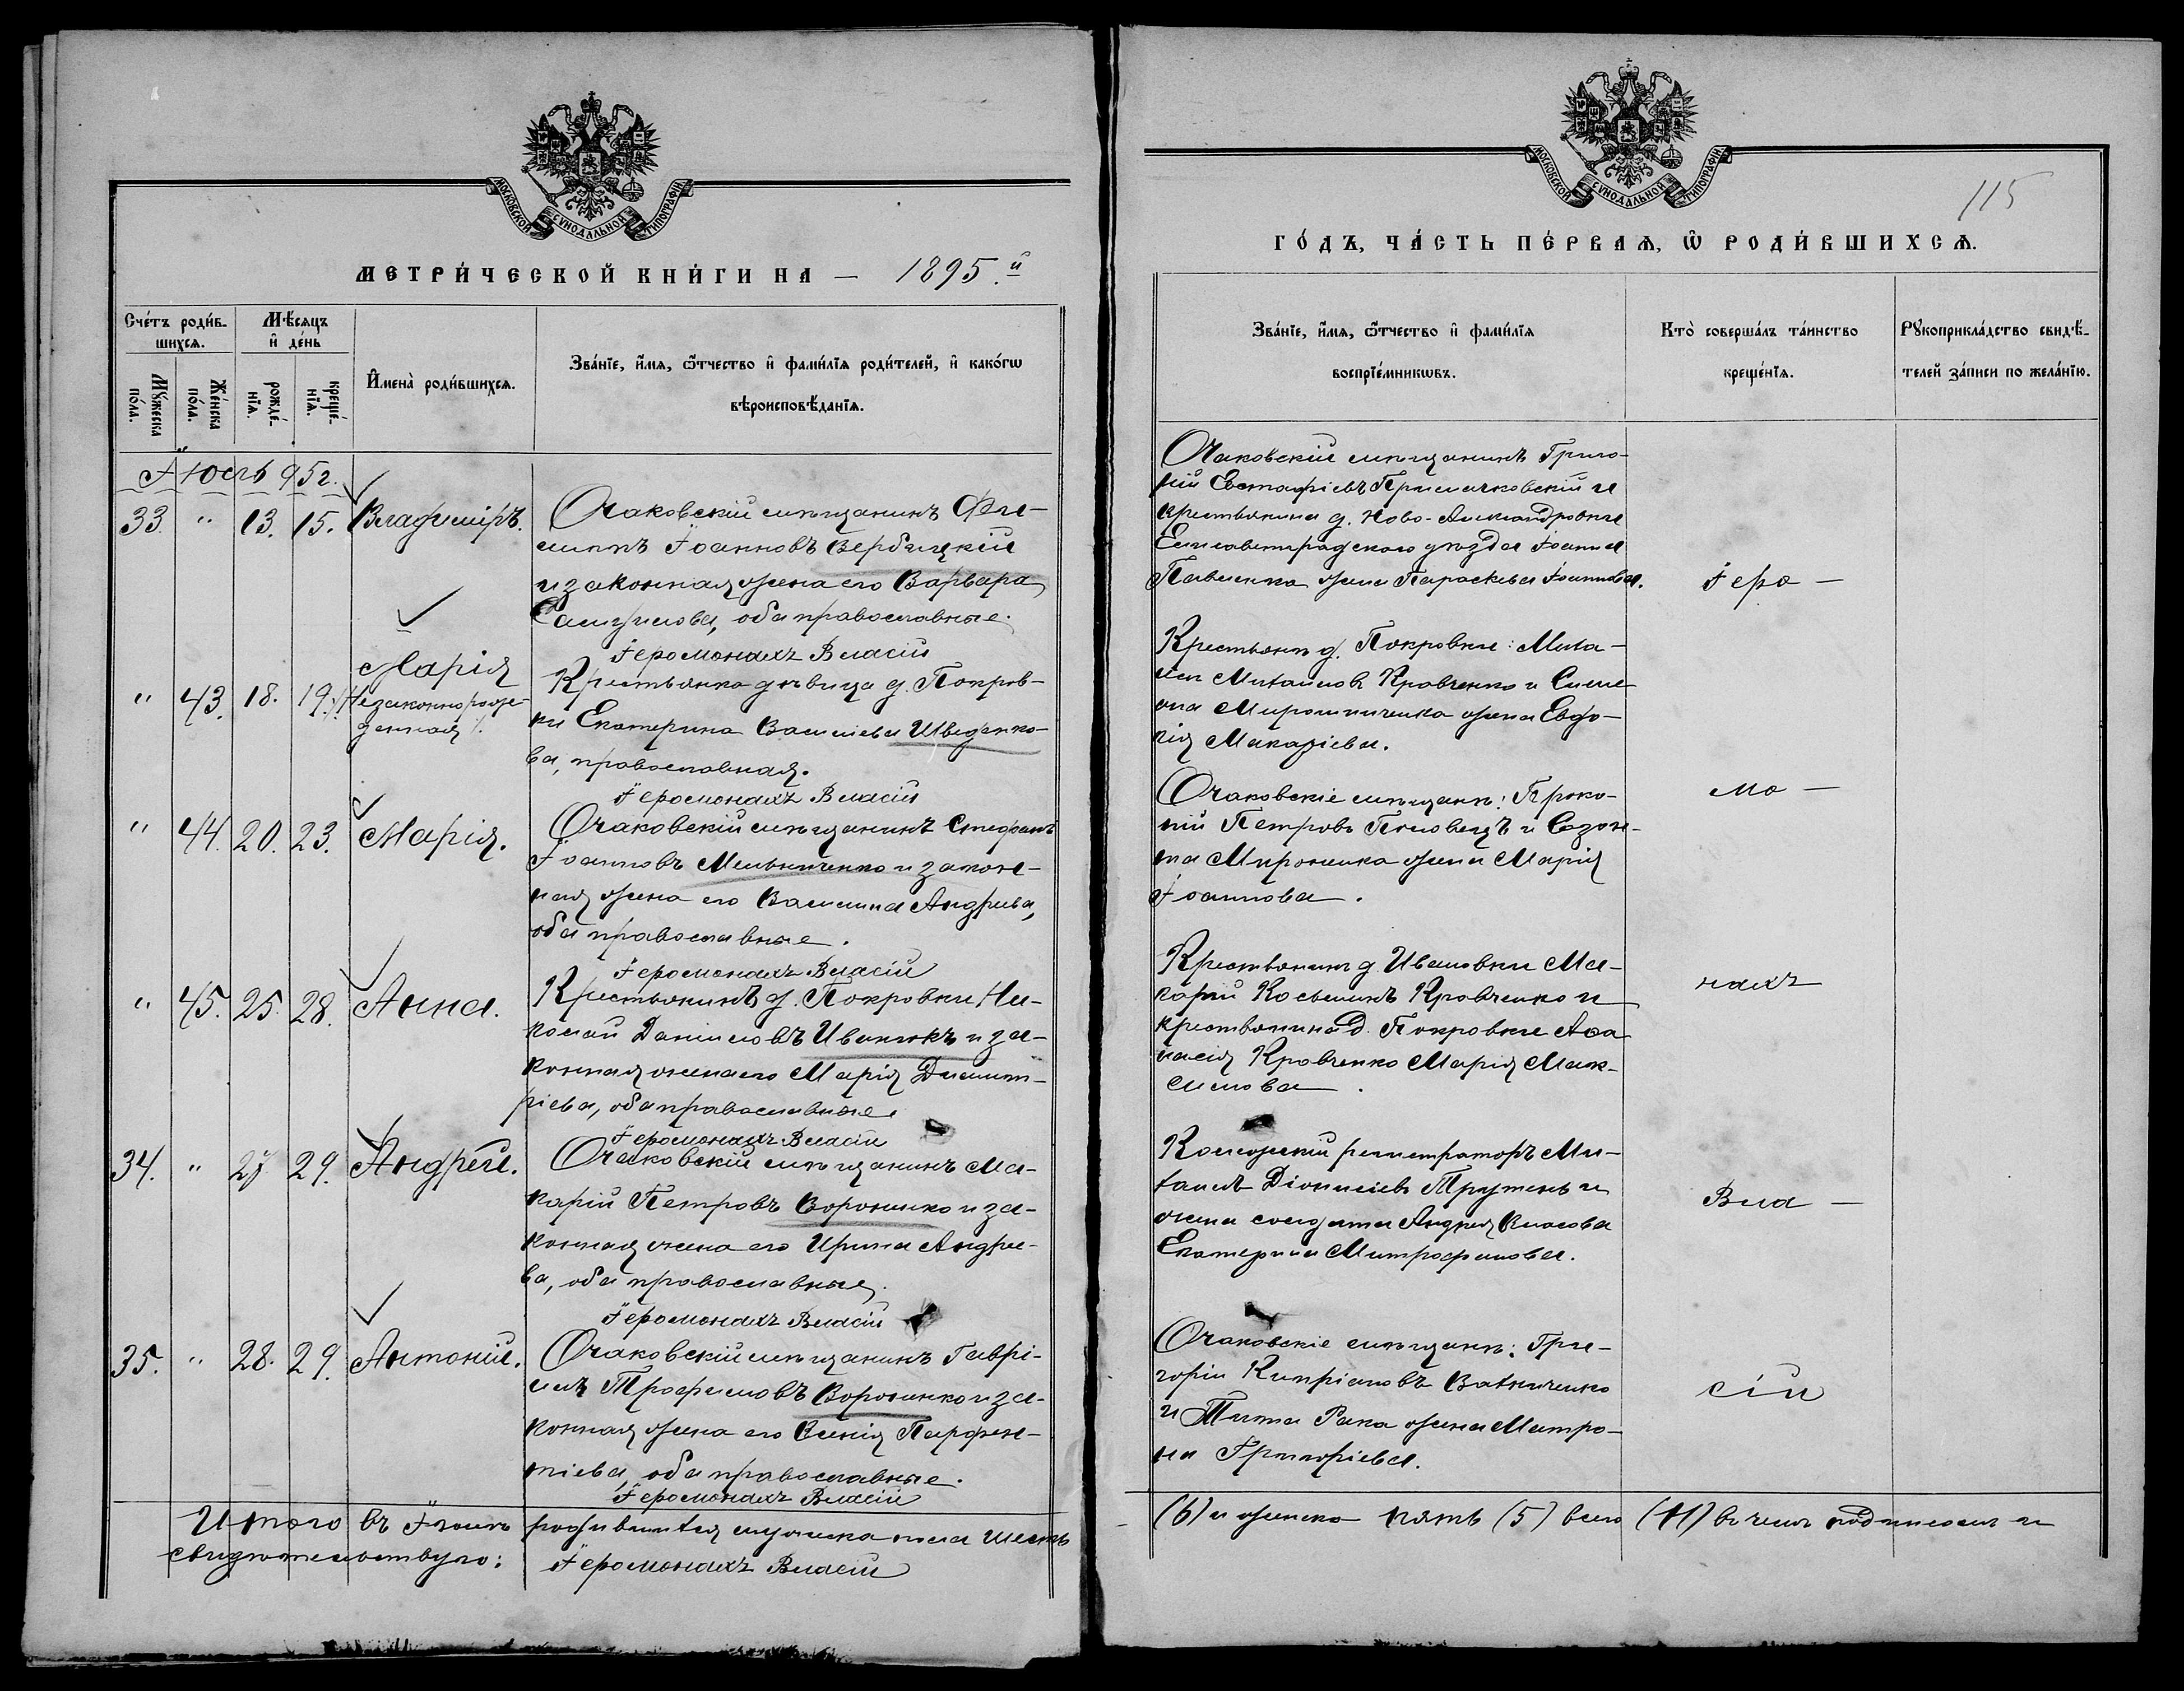 МОСКОВСКОЙ СѴНОДАЛЬНОЙ ТИПОГРАФІИ
МЕТРИ́ЧЕСКОЙ КНИ́ГИ НА — 1895.й
Сче́тъ роди́в-
шихсѧ.
Мѣ́сѧцъ
и҆ де́нь
Мꙋ́жеска
по́ла.
Же́нска
по́ла.
рожде́-
нїѧ.
креще́-
нїѧ.
И҆мена̀ роди́вшихсѧ.
Зва́нїе, и҆́мѧ, ѻ҆́тчество и҆ фами́лїѧ роди́телей, и҆ како́гѡ
вѣроисповѣ́данїѧ.
Іюль 95 г.
33. " 13. 15. Владиміръ. Очаковскій мѣщанинъ Фи-
липпъ Іоанновъ Вербицкій
и законная жена его Варвара
Самуилова, оба православные.
Іеромонахъ Власій
" 43. 18. 19. Марія
/Незаконнорож-
денная/.
Крестьянка дѣвица д. Покров-
ки Екатерина Василіева Шведенко-
ва, православная.
Іеромонахъ Власій
" 44. 20. 23. Марія. Очаковскій мѣщанинъ Стефанъ
Іоанновъ Мельниченко и закон-
ная жена его Василина Андреева,
оба православные.
Іеромонахъ Власій
" 45. 25. 28. Анна. Крестьянинъ д. Покровки Ни-
колай Даніиловъ Иванюкъ и за-
конная жена его Марія Димит-
ріева, оба православные.
Іеромонахъ Власій
34. " 27 29. Андрей. Очаковскій мѣщанинъ Ма-
карій Петровъ Вороненко и за-
конная жена его Ирина Андрее-
ва, оба православные.
Іеромонахъ Власій
35. " 28. 29. Антоній. Очаковскій мѣщанинъ Гаврі-
илъ Трофимовъ Вороненко и за-
конная жена его Ксенія Парфен-
тіева, оба православные.
Іеромонахъ Власій
Итого въ Іюлѣ родившихся мужска пола шесть
свидѣтельствую: Іеромонахъ Власій
МОСКОВСКОЙ СѴНОДАЛЬНОЙ ТИПОГРАФІИ
115
ГО́ДЪ, ЧА́СТЬ ПЕ́РВАѦ, Ѡ҆ РОДИ́ВШИХСѦ.
Зва́нїе, и҆́мѧ, ѻ҆́тчество и҆ фами́лїѧ
воспрїе́мникѡвъ.
Кто̀ соверша́лъ та́инство
креще́нїѧ.
Рꙋкоприкла́дство свидѣ́-
телей за́писи по жела́нїю.
Очаковскій мѣщанинъ Григо-
рій Евстафіевъ и
крестьянина д. Ново-Александровки
Елисаветградскаго уѣзда Іоанна
Павленка жена Параскева Іоаннова.
Іеро —
Крестьяне д. Покровки: Миха-
илъ Михаиловъ Кравченко и Симе-
она Мирошниченка жена Евдо-
кія Макаріева.
Очаковскіе мѣщане: Проко-
пій Петровъ и Созон-
та Мироненка жена Марія
Іоаннова.
мо —
Крестьянинъ д. Ивановки Ма-
карій Косьминъ Кравченко и
крестьянина д. Покровки Аѳа
насія Кравченко Марія Мак-
симова.
нахъ
Коллежскій регистраторъ Ми-
хаилъ Діонисіевъ Трутень и
жена солдата Андрея Власова
Екатерина Митрофанова.
Вла —
Очаковскіе мѣщане: Гри-
горій Кипріановъ Вахниченко
и Тита Рака жена Матро-
на Григоріева.
сій
(6) и женска пять (5) всего (11) въ чемъ подписомъ и